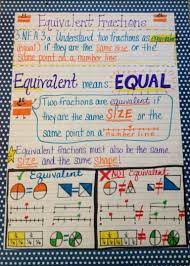 Equivalent Fractions
3.NF.A.3a Understand two fractions as equivalent
(equal) if they are the same size or the
same point on a number line.
Equivalent means: EQUAL
Two fractions are equivalent if
they are the same SIZE or the
same point on a
Equivalent fractions must also be the same
size and the same shape!
Equivalent
NOT Equivalent